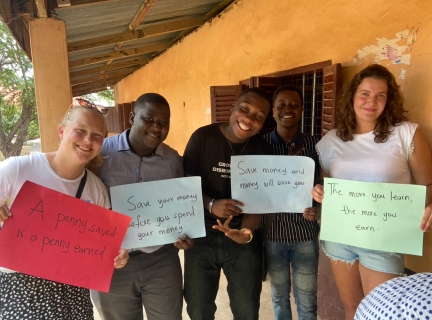 A penny saved
is a penny earned
Save your money
before you spend
your money
Save money and
money will save you
The more you learn,
the more you
earn